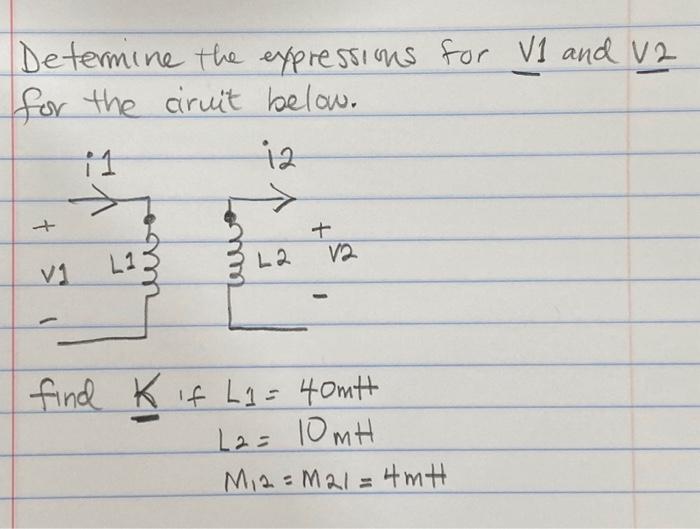 Determine the expressions for V1 and V2
for the ciruit below.
i1 i2
+ +
V1 L1 L2 V2
- -
find K if L1 = 40mH
L2 = 10mH
M12 = M21 = 4mH